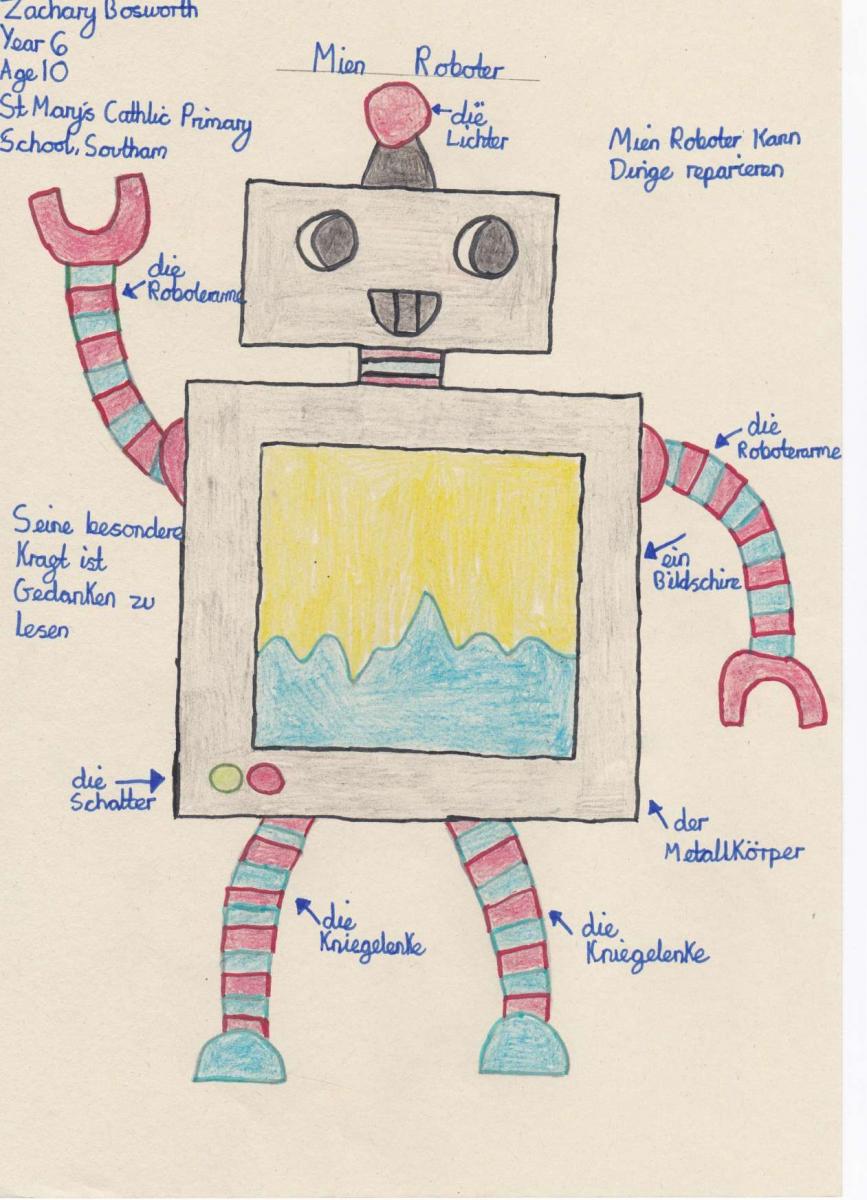 Zachary Bosworth
Year 6
Age 10
St Mary's Cathlic Primary
School, Southam
Mien Roboter
die
Lichter
Mien Roboter Kann
Dinge reparieren
die
Roboterarme
die
Roboterarme
Seine besondere
Kragt ist
Gedanken zu
Lesen
ein
Bildschire
die
Schalter
der
MetallKörper
die
Kniegelenke
die
Kniegelenke